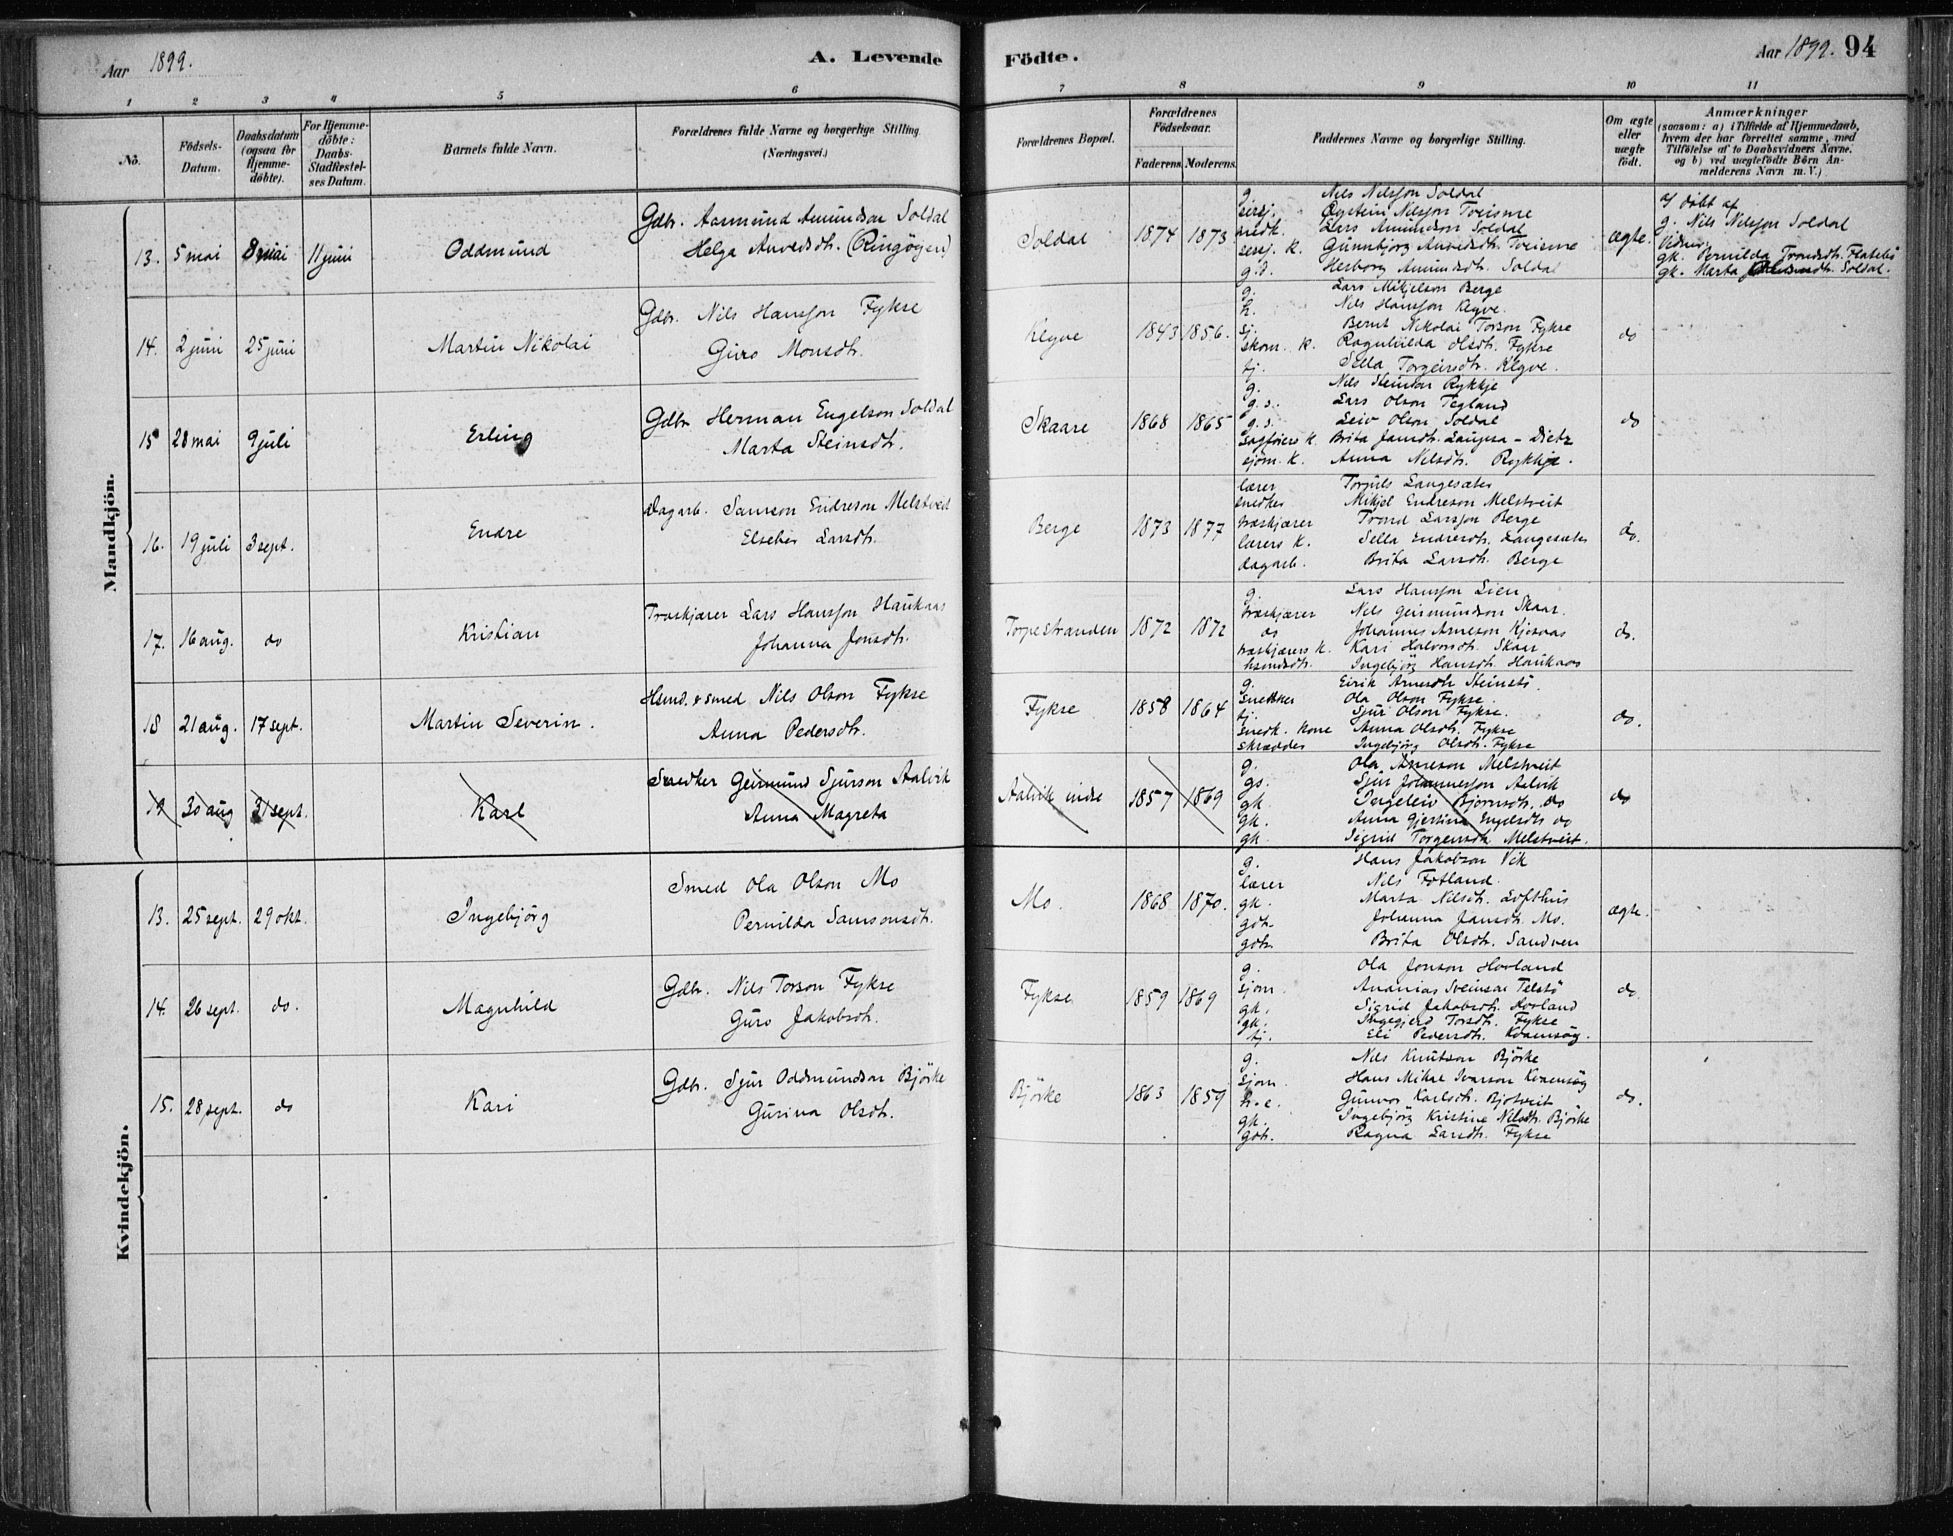 Aar 1899. A. Levende Födte. Aar 1899. 94
1 2 3 4 5 6 7 8 9 10 11
No. Födsels-Datum. Daabsdatum (ogsaa for Hjemme-döbte). For Hjemme-döbte: Daabs-Stadfæstel-ses Datum. Barnets fulde Navn. Forældrenes fulde Navne og borgerlige Stilling. (Næringsvei.) Forældrenes Bopæl. Forældrenes Födselsaar. Faderens. Moderens. Faddernes Navne og borgerlige Stilling. Om ægte eller uægte födt. Anmærkninger (saasom: a) i Tilfælde af Hjemmedaab, hvem der har forrettet samme, med Tilföielse af to Daabsvidners Navne, og b) ved uægtefödte Börn An-melderens Navn m. V.)
Mandkjön.
13. 5 mai 8 mai 11 juni Oddmund
Gdbr. Aasmund Amundson Soldal
Helga Arvedsdtr. (Ringöyen)
Soldal 1874 1873
g. Nils Nilsson Soldal
Öystein Nilsson Tveisme
snedk. Lars Amundson Soldal
k. Gunnbjörg Arvedsdtr. Tveisme
g.d. Herborg Amundsdtr. Soldal
ægte.
a) döbt af
g. Nils Nilsson Soldal
Vidner:
gk. Pernilda Trondsdtr. Flatebö
gk. Marta Soldal.
14. 2 juni 25 juni Martin Nikolai
Gdbr. Nils Hansson Fykse
Guro Monsdtr.
Klyve 1843 1856.
g. Lars Mikjelson Berge
h. Nils Hansson Klyve.
sj. Bernt Nikolai Torson Fykse
skom. k. Ragnhilda Olsdtr. Fykse
tj. Sella Torgeirsdtr. Klyve.
do
15 28 mai 9 juli Erling
Gdbr. Herman Engelson Soldal
Marta Steinsdtr.
Skaare 1868 1865
g. Nils Steinson Rykkje
g.s. Lars Olson Tegland
g.s. Leiv Olson Soldal
k. Brita Jansdtr. Laupsa - Dietz
sjöm. k. Anna Nilsdtr. Rykkje.
do
16. 19 juli 3 sept. Endre
Dagarb. Samson Endreson Melstveit
Elsebes Larsdtr.
Berge 1873 1877
lærer Torjuls Langesæter
snedker Mikjel Endreson Melstveit
træskjærer Trond Larsson Berge
lærers k. Sella Endresdtr. Langesæter
dagarb. Brita Larsdtr. Berge
do.
17. 16 aug. do Kristian
Træskjærer Lars Hansson Haukaas
Johanna Jonsdtr.
Torpestranden 1872 1872
g. Lars Hansson Lien
træskjærer Nils Geirmundson Skaar.
do Johannes Arneson Kjosaas
træskjærers k. Kari Halvorsdtr. Skaar
husmdsdtr. Ingebjörg Hansdtr. Haukaas
do.
18 21 aug. 17 sept. Martin Severin.
Husmd. & smed Nils Olson Fykse
Anna Pedersdtr.
Fykse 1858 1864
g. Eirik Arnesdtr Steinstö.
snedker Ola Olson Fykse
tj. Sjur Olson Fykse.
snedk. kone Anna Olsdtr. Fykse
skrædder Ingebjörg Olsdtr. Fykse
do.
19 30 aug 31 sept. Karl
Snedker Geirmund Sjurson Aalvik
Anna Magreta
Aalvik indre 1857 1869
g. Ola Arneson Melstveit
gs. Sjur Johannesson Aalvik
gk. Ingeleiv Bjornsdtr. do
gk. Anna Gjertina Engelsdtr do
gk. Sigrid Torgeirsdtr Melstveit.
do
Kvindekjön.
13. 25 sept. 29 okt. Ingebjörg
Smed Ola Olson Mo
Pernilda Samsonsdtr.
Mo. 1868 1870.
g. Hans Jakobson Vik
lærer Nils Fotland.
gk. Marta Nilsdtr. Lofthus
gdtr. Johanna Jansdtr. Mo.
gdtr. Brita Olsdtr. Sandven
ægte.
14. 26 sept. do. Magnhild
Gdbr. Nils Torson Fykse
Guro Jakobsdtr.
Fykse 1859 1869
g. Ola Jonson Hovland
sjöm. Ananias Sveinson Telstö
gk. Sigrid Jakobsdtr. Hovland
gk. Ingegjerd Torsdtr. Fykse
tj. Eli Pedersdtr. Kvamsög.
do.
15. 28 sept. do Kari
Gdbr. Sjur Oddmundson Björke
Gurina Olsdtr.
Björke 1863 1859
g. Nils Knutson Björke
sjöm. Hans Mikal Ivarson Kvamsög
h.e. Gunvor Karlsdtr. Bjotveit
gk. Ingebjörg Kristine Nilsdtr. Björke
gdtr. Ragna Larsdtr. Fykse
do.